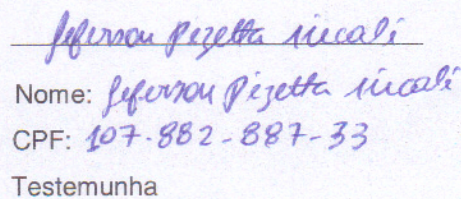 Jeferson Pizetta Nicoli
Nome: Jeferson Pizetta Nicoli
CPF: 107.882-887-33
Testemunha